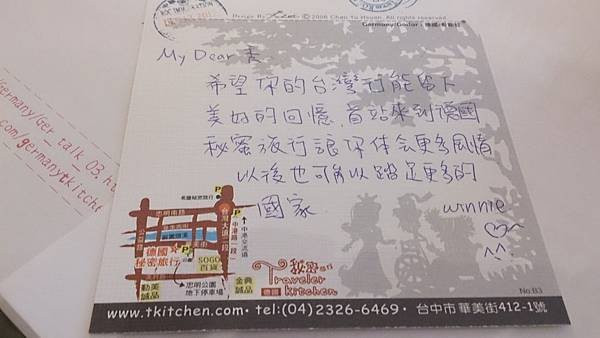 Design By
© 2008 Chen Yu Hsuan. All rights reserved.
My Dear
希望你的台灣行能留下
美好的回憶,首站來到德國
秘蜜旅行讓你体会更多風情
以後也可以踏足更多的
國家
winnie
^^
希臘秘密旅行
P
忠明南路
公益路
向上路
中港路一段
台灣大道一段
中港交流道
美村路
德國
秘密旅行
SOGO
百貨
忠明公園
地下停車場
勤美
誠品
金典
誠品
Traveler
Kitchen
德國
No:B3
www.tkitchen.com • tel:(04)2326-6469 • 台中市 華美街412-1號
Germany/Ger_talk_03.h
com/germanytkitche